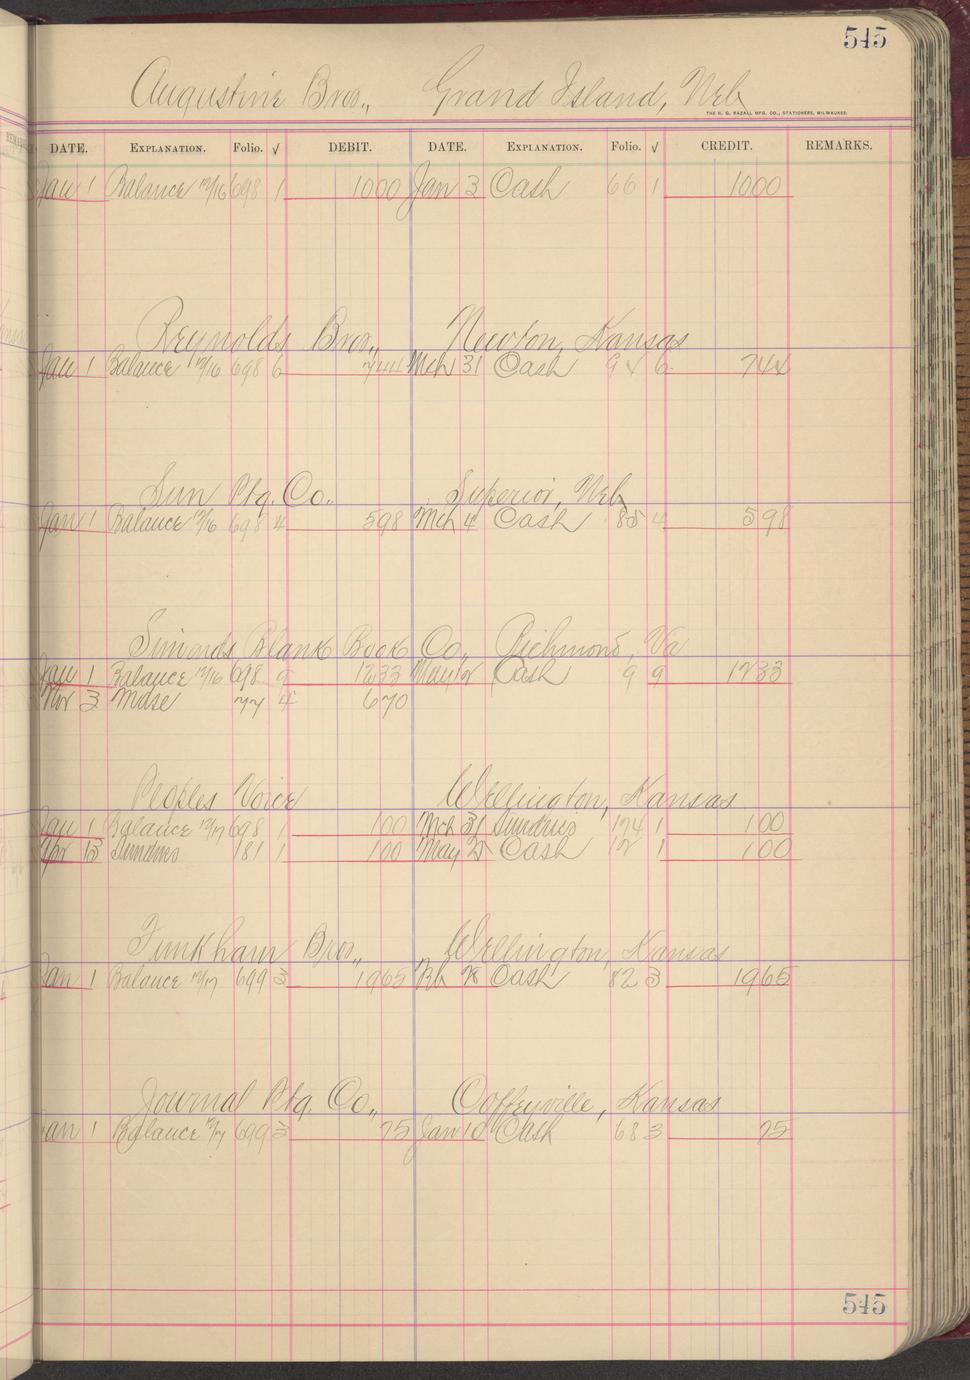 545
Augustine Bros., Grand Island, Neb
THE H. G. RAZALL MFG. CO., STATIONERS, MILWAUKEE.
DATE. EXPLANATION. Folio. √ DEBIT. DATE. EXPLANATION. Folio. √ CREDIT. REMARKS.
Jan 1 Balance 12/16 698 1 1000 Jan 3 Cash 66 1 1000
Reynolds Bros., Newton, Kansas
Jan 1 Balance 12/16 698 6 744 Mch 31 Cash 94 6 744
Sun Ptg. Co., Superior, Neb
Jan 1 Balance 12/16 698 4 598 Mch 4 Cash 85 4 598
Simonds Blank Book Co., Richmond, Va
Jan 1 Balance 12/16 698 9 1233 May 12 Cash 9 9 1233
Nov 3 Mdse 77 4 670
Peoples Voice Wellington, Kansas
Jan 1 Balance 12/17 698 1 100 Mch 31 Sundries 174 1 100
Apr 13 Sundries 181 1 100 May 25 Cash 12 1 100
Funkham Bros., Wellington, Kansas
Jan 1 Balance 12/17 699 3 1965 Feb 28 Cash 82 3 1965
Journal Ptg. Co., Coffeyville, Kansas
Jan 1 Balance 12/17 699 3 75 Jan 10 Cash 68 3 75
545